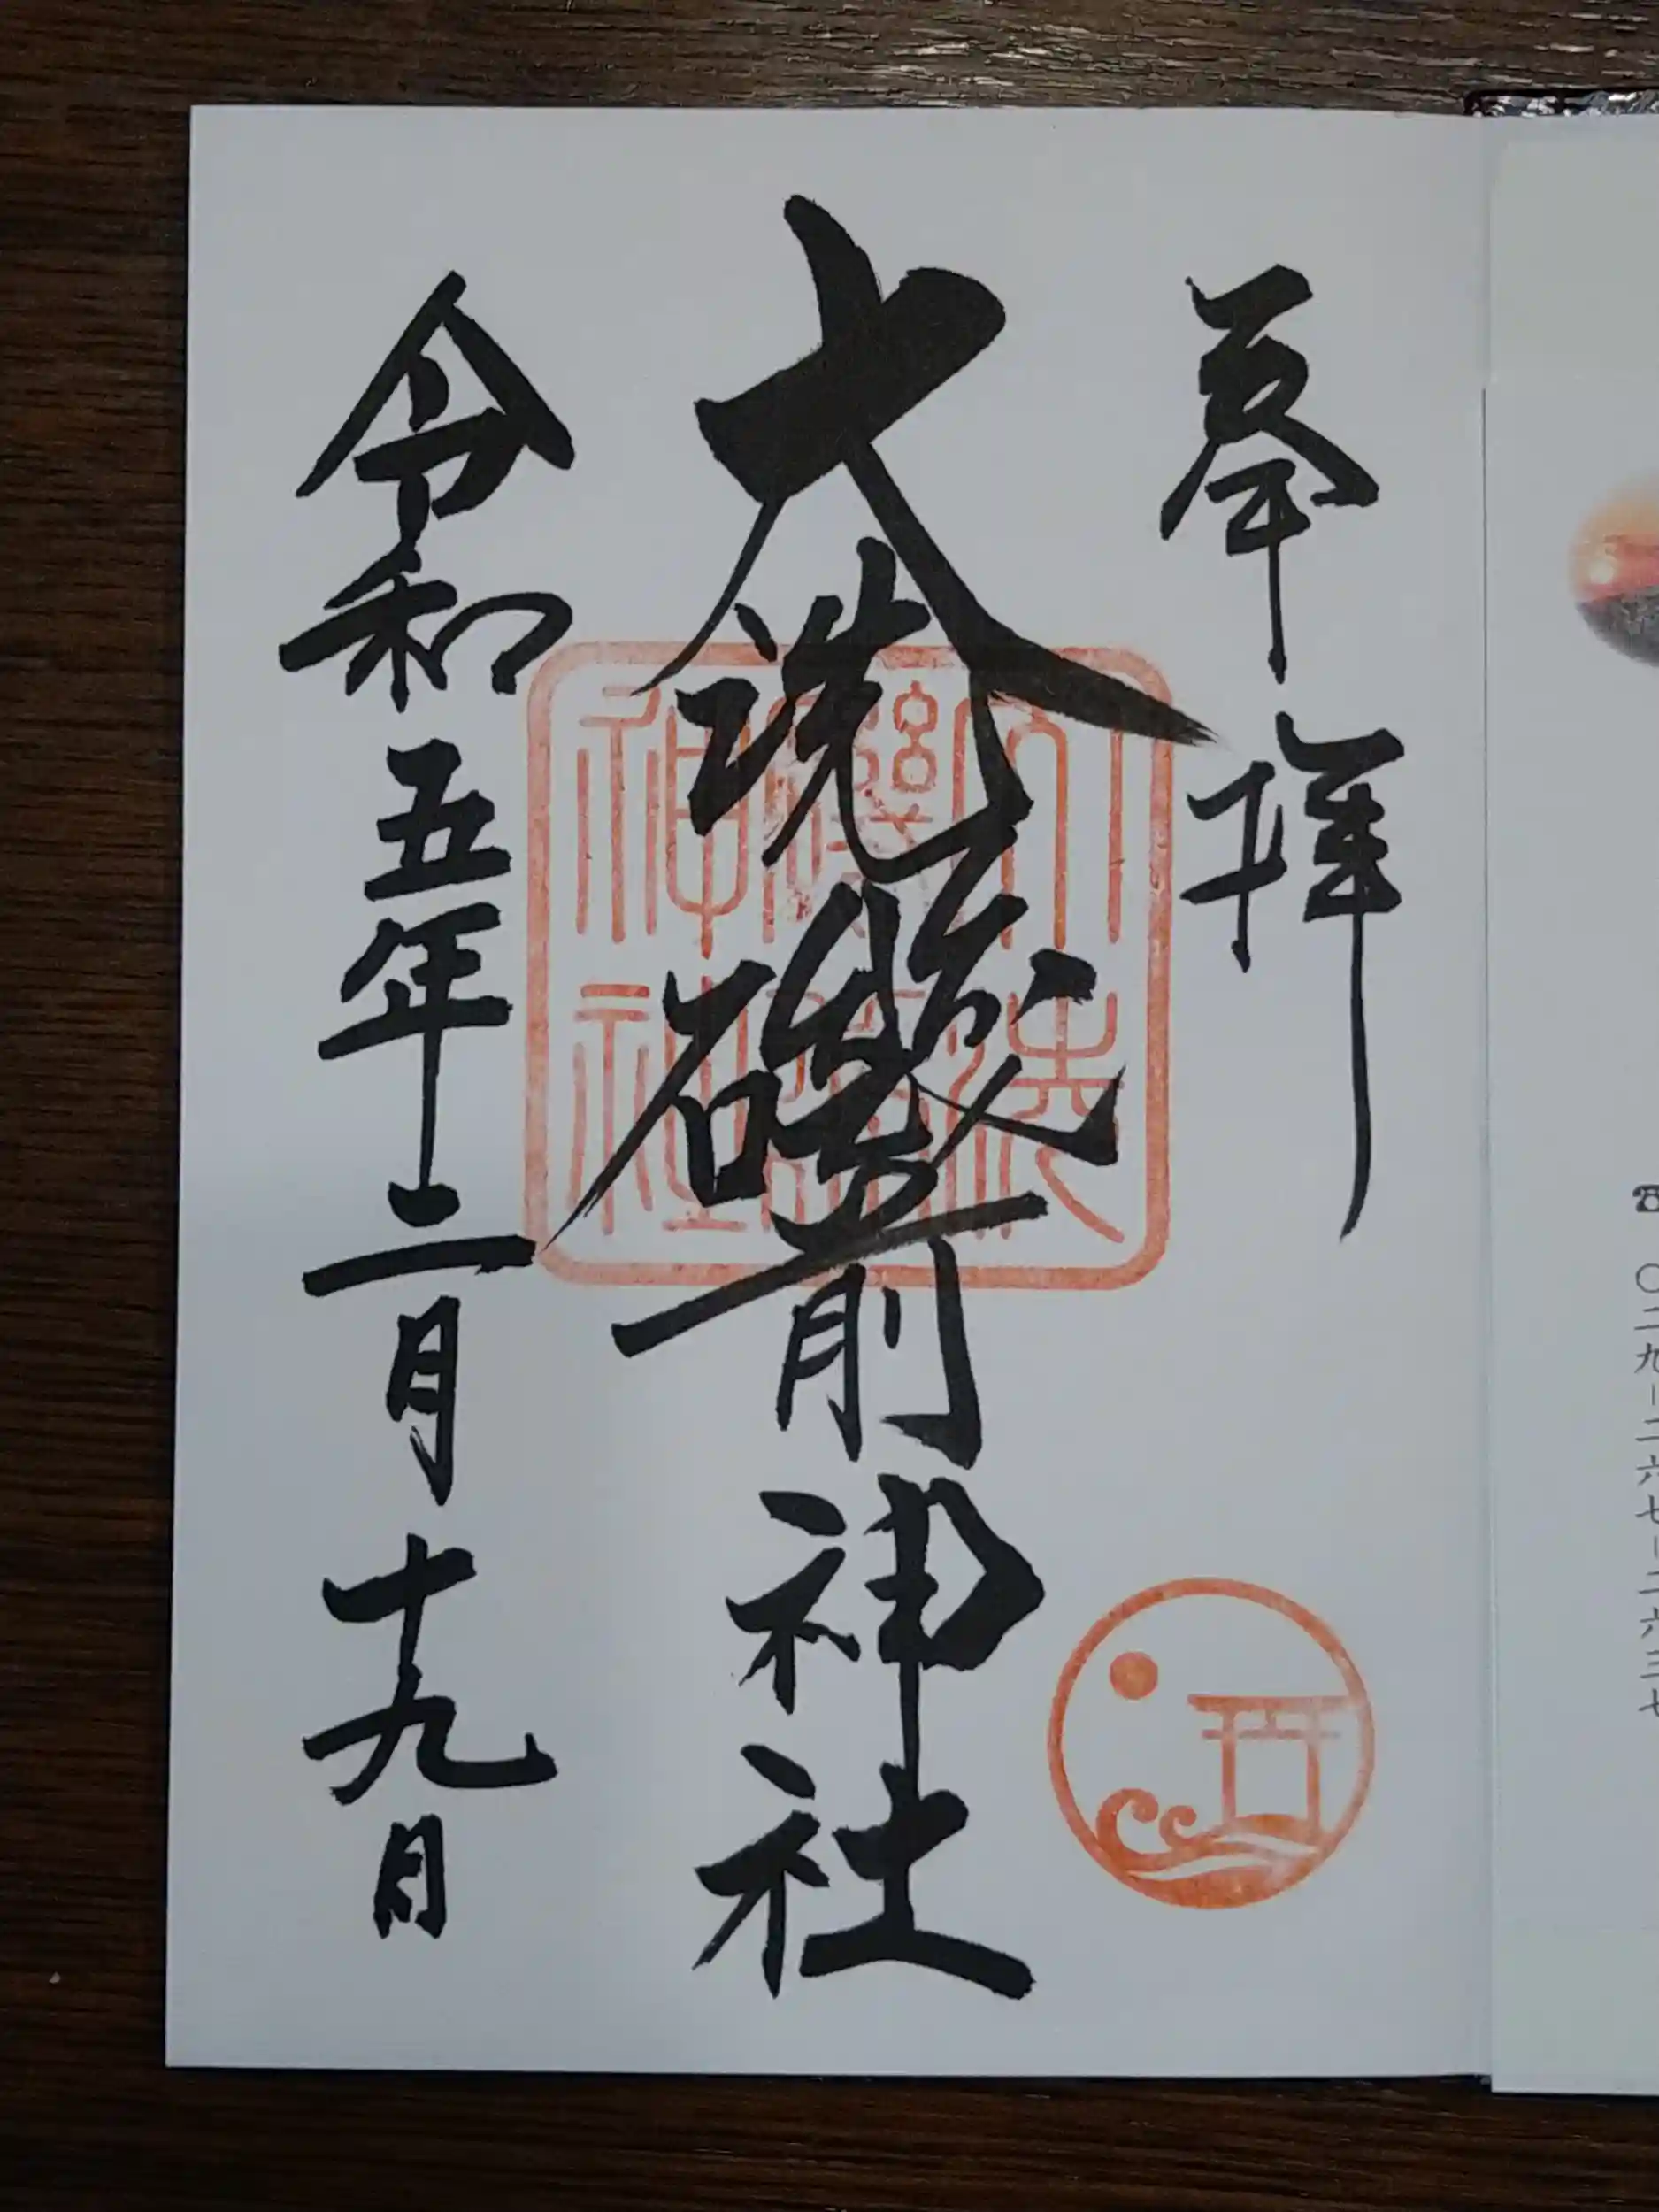 奉拝
大洗磯前神社
令和五年二月十九日
大洗
磯前
神社
☎〇二九-二六七-二六三七